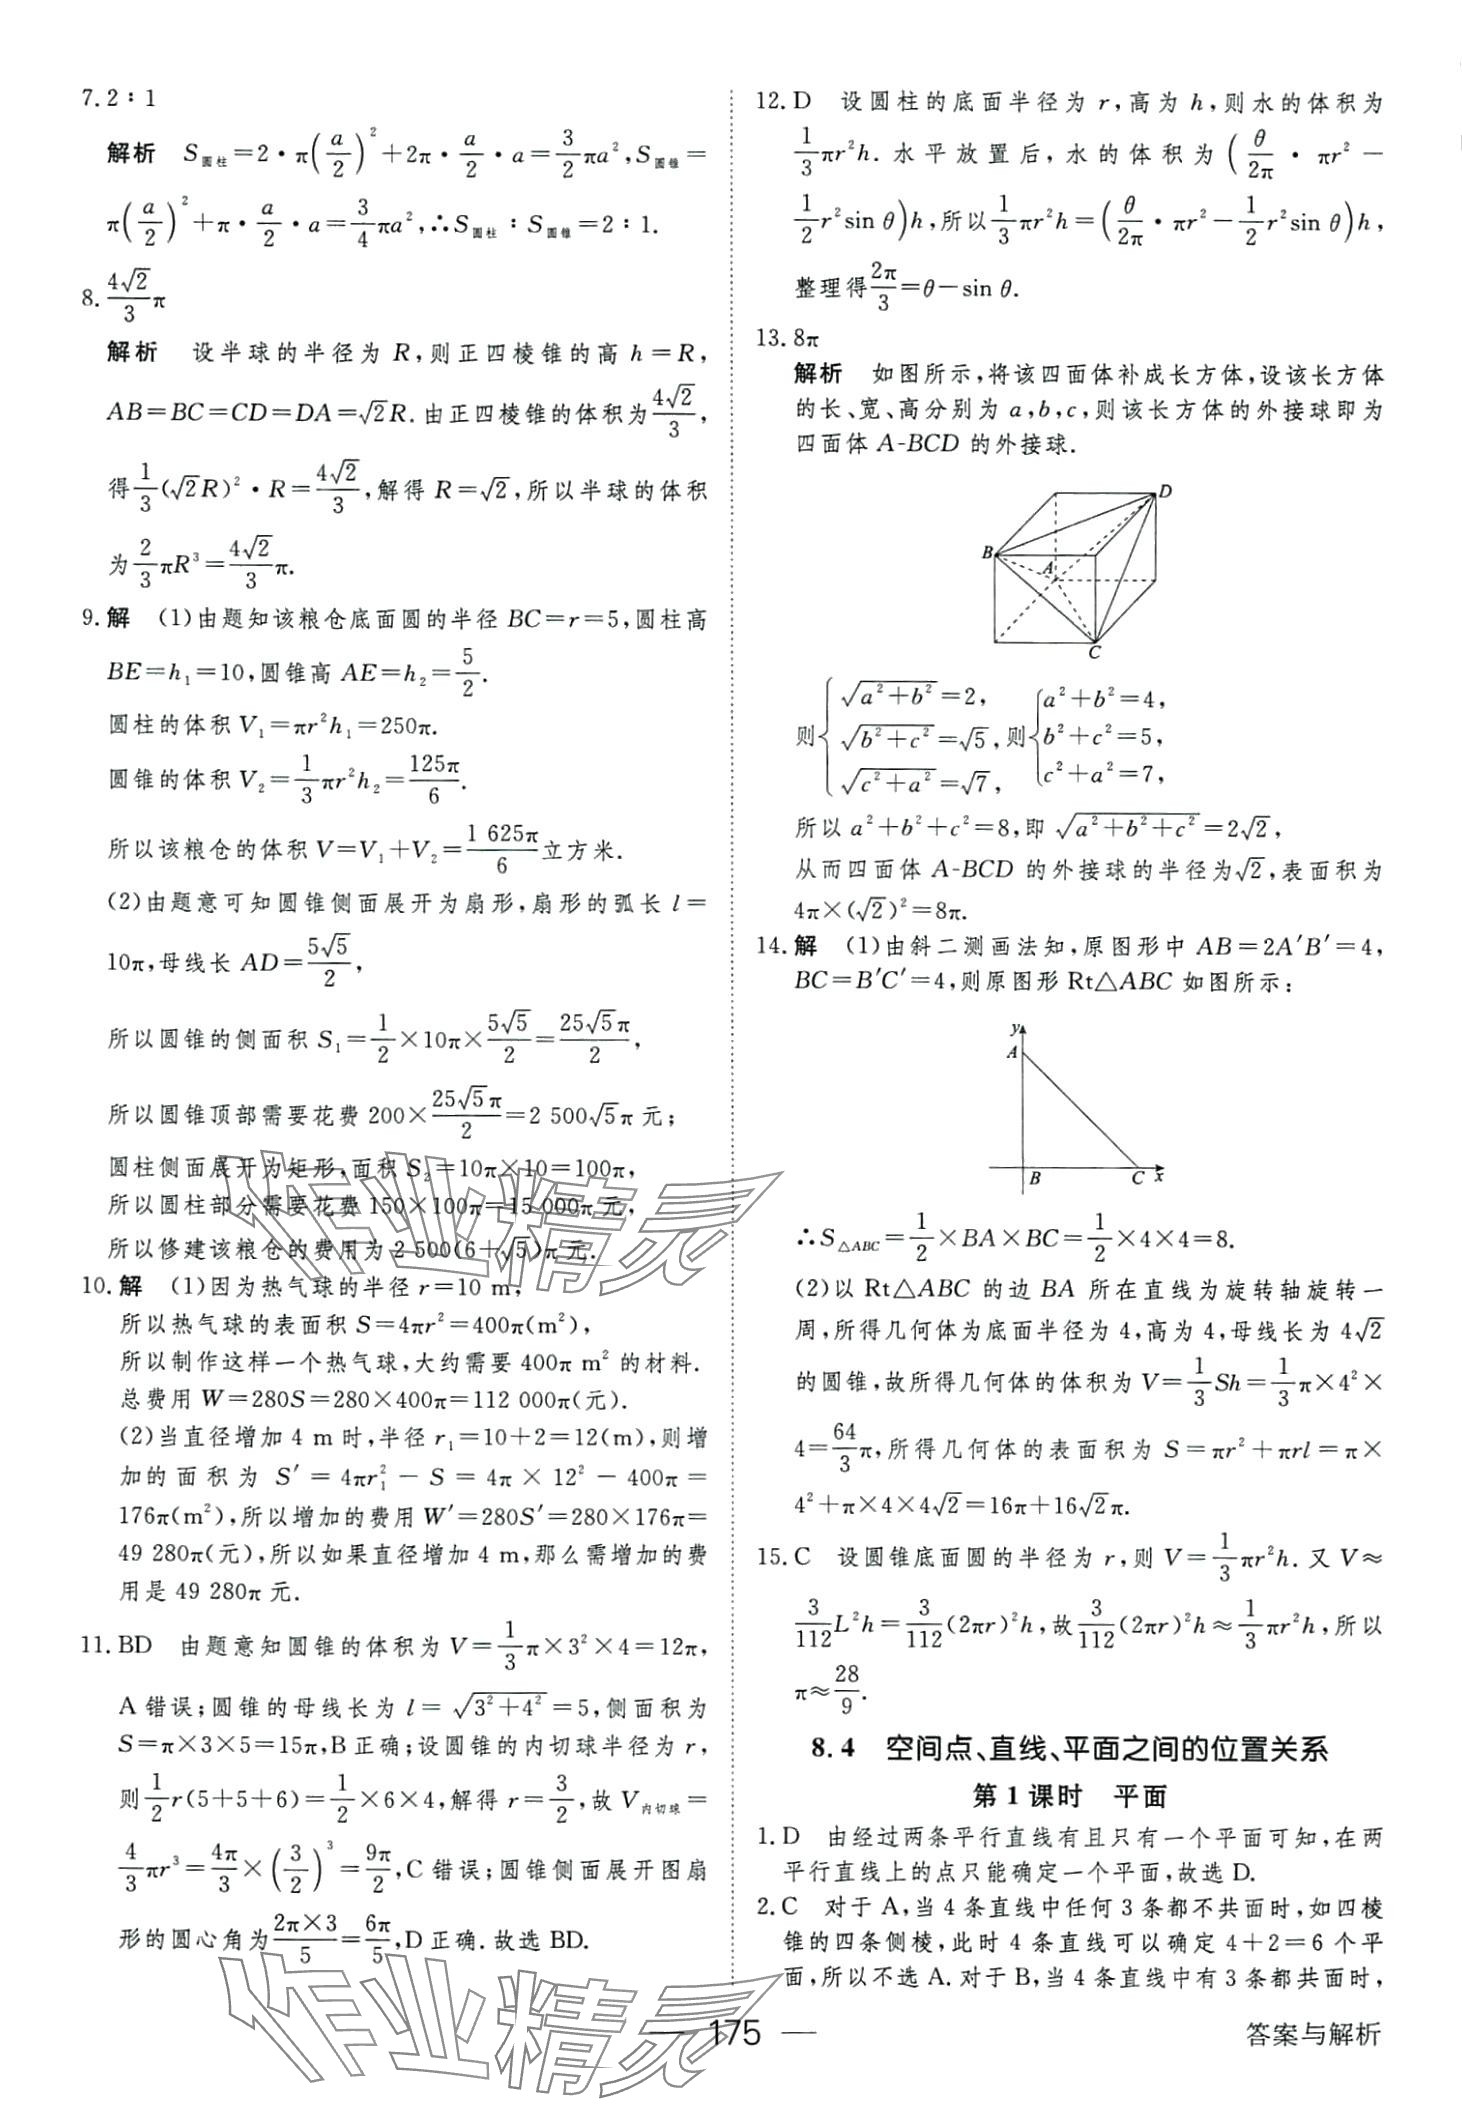 7. 2∶1
解析 S圆柱=2·π(a/2)²+2π·a/2·a=3/2πa²,S圆锥=
π(a/2)²+π·a/2·a=3/4πa²,∴S圆柱∶S圆锥=2∶1.
8. 4√2/3 π
解析 设半球的半径为 R,则正四棱锥的高 h=R,
AB=BC=CD=DA=√2R.由正四棱锥的体积为4√2/3,
得1/3(√2R)²·R=4√2/3,解得 R=√2,所以半球的体积
为2/3πR³=4√2/3π.
9. 解 (1)由题知该粮仓底面圆的半径 BC=r=5,圆柱高
BE=h₁=10,圆锥高 AE=h₂=5/2.
圆柱的体积 V₁=πr²h₁=250π.
圆锥的体积 V₂=1/3πr²h₂=125π/6.
所以该粮仓的体积 V=V₁+V₂=1 625π/6立方米.
(2)由题意可知圆锥侧面展开为扇形,扇形的弧长 l=
10π,母线长 AD=5√5/2,
所以圆锥的侧面积 S₁=1/2×10π×5√5/2=25√5π/2,
所以圆锥顶部需要花费 200×25√5π/2=2 500√5π 元;
圆柱侧面展开为矩形,面积 S₂=10π×10=100π,
所以圆柱部分需要花费 150×100π=15 000π 元,
所以修建该粮仓的费用为 2 500(6+√5)π 元.
10. 解 (1)因为热气球的半径 r=10 m,
所以热气球的表面积 S=4πr²=400π(m²),
所以制作这样一个热气球,大约需要 400π m² 的材料.
总费用 W=280S=280×400π=112 000π(元).
(2)当直径增加 4 m 时,半径 r₁=10+2=12(m),则增
加的面积为 S′=4πr₁²-S=4π×12²-400π=
176π(m²),所以增加的费用 W′=280S′=280×176π=
49 280π(元),所以如果直径增加 4 m,那么需增加的费
用是 49 280π 元.
11. BD 由题意知圆锥的体积为 V=1/3π×3²×4=12π,
A 错误;圆锥的母线长为 l=√(3²+4²)=5,侧面积为
S=π×3×5=15π,B 正确;设圆锥的内切球半径为 r,
则1/2r(5+5+6)=1/2×6×4,解得 r=3/2,故 V内切球=
4/3πr³=4π/3×(3/2)³=9π/2,C 错误;圆锥侧面展开图扇
形的圆心角为2π×3/5=6π/5,D 正确.故选 BD.
12. D 设圆柱的底面半径为 r,高为 h,则水的体积为
1/3πr²h.水平放置后,水的体积为(θ/2π·πr²-
1/2r²sin θ)h,所以1/3πr²h=(θ/2π·πr²-1/2r²sin θ)h,
整理得2π/3=θ-sin θ.
13. 8π
解析 如图所示,将该四面体补成长方体,设该长方体
的长、宽、高分别为 a,b,c,则该长方体的外接球即为
四面体 A-BCD 的外接球.
D
B
A
C
则{√(a²+b²)=2, √(b²+c²)=√5, √(c²+a²)=√7, 则{a²+b²=4, b²+c²=5, c²+a²=7,
所以 a²+b²+c²=8,即 √(a²+b²+c²)=2√2,
从而四面体 A-BCD 的外接球的半径为√2,表面积为
4π×(√2)²=8π.
14. 解 (1)由斜二测画法知,原图形中 AB=2A′B′=4,
BC=B′C′=4,则原图形 Rt△ABC 如图所示:
y
A
B
C x
∴S△ABC=1/2×BA×BC=1/2×4×4=8.
(2)以 Rt△ABC 的边 BA 所在直线为旋转轴旋转一
周,所得几何体为底面半径为 4,高为 4,母线长为 4√2
的圆锥,故所得几何体的体积为 V=1/3Sh=1/3π×4²×
4=64/3π,所得几何体的表面积为 S=πr²+πrl=π×
4²+π×4×4√2=16π+16√2π.
15. C 设圆锥底面圆的半径为 r,则 V=1/3πr²h.又 V≈
3/112L²h=3/112(2πr)²h,故3/112(2πr)²h≈1/3πr²h,所以
π≈28/9.
8.4 空间点、直线、平面之间的位置关系
第 1 课时 平面
1. D 由经过两条平行直线有且只有一个平面可知,在两
平行直线上的点只能确定一个平面,故选 D.
2. C 对于 A,当 4 条直线中任何 3 条都不共面时,如四棱
锥的四条侧棱,此时 4 条直线可以确定 4+2=6 个平
面,所以不选 A.对于 B,当 4 条直线中有 3 条都共面时,
— 175 —
答案与解析
作业精灵
作业精灵